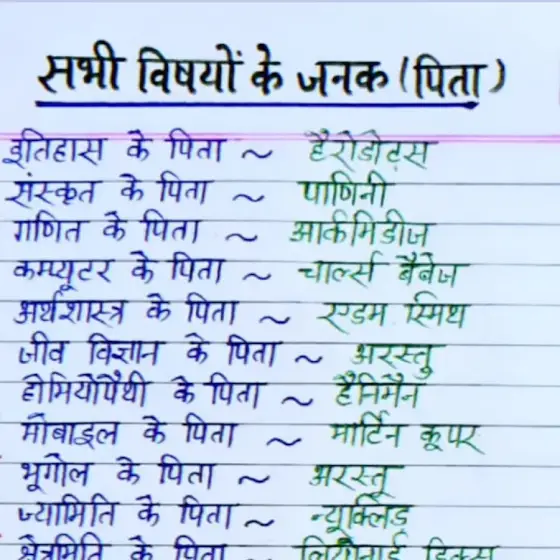 सभी विषयों के जनक (पिता)
इतिहास के पिता ~ हैरोडोट्स
संस्कृत के पिता ~ पाणिनी
गणित के पिता ~ आर्कमिडीज
कम्प्यूटर के पिता ~ चार्ल्स बैबेज
अर्थशास्त्र के पिता ~ एडम स्मिथ
जीव विज्ञान के पिता ~ अरस्तु
होमियोपैथी के पिता ~ हैमिमैन
मोबाइल के पिता ~ मार्टिन कूपर
भूगोल के पिता ~ अरस्तू
ज्यामिति के पिता ~ न्यूक्लिड
क्षेत्रमिति के पिता ~ लियोनार्ड डिक्स